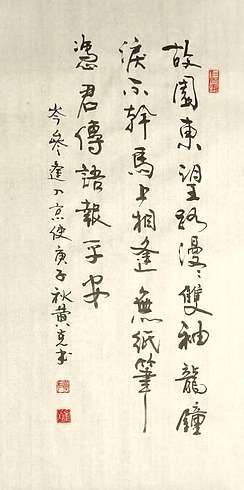 故園東望路漫〻雙袖龍鐘
淚不幹馬上相逢無紙筆
憑君傳語報平安
岑參逢入京使庚子秋黄克书